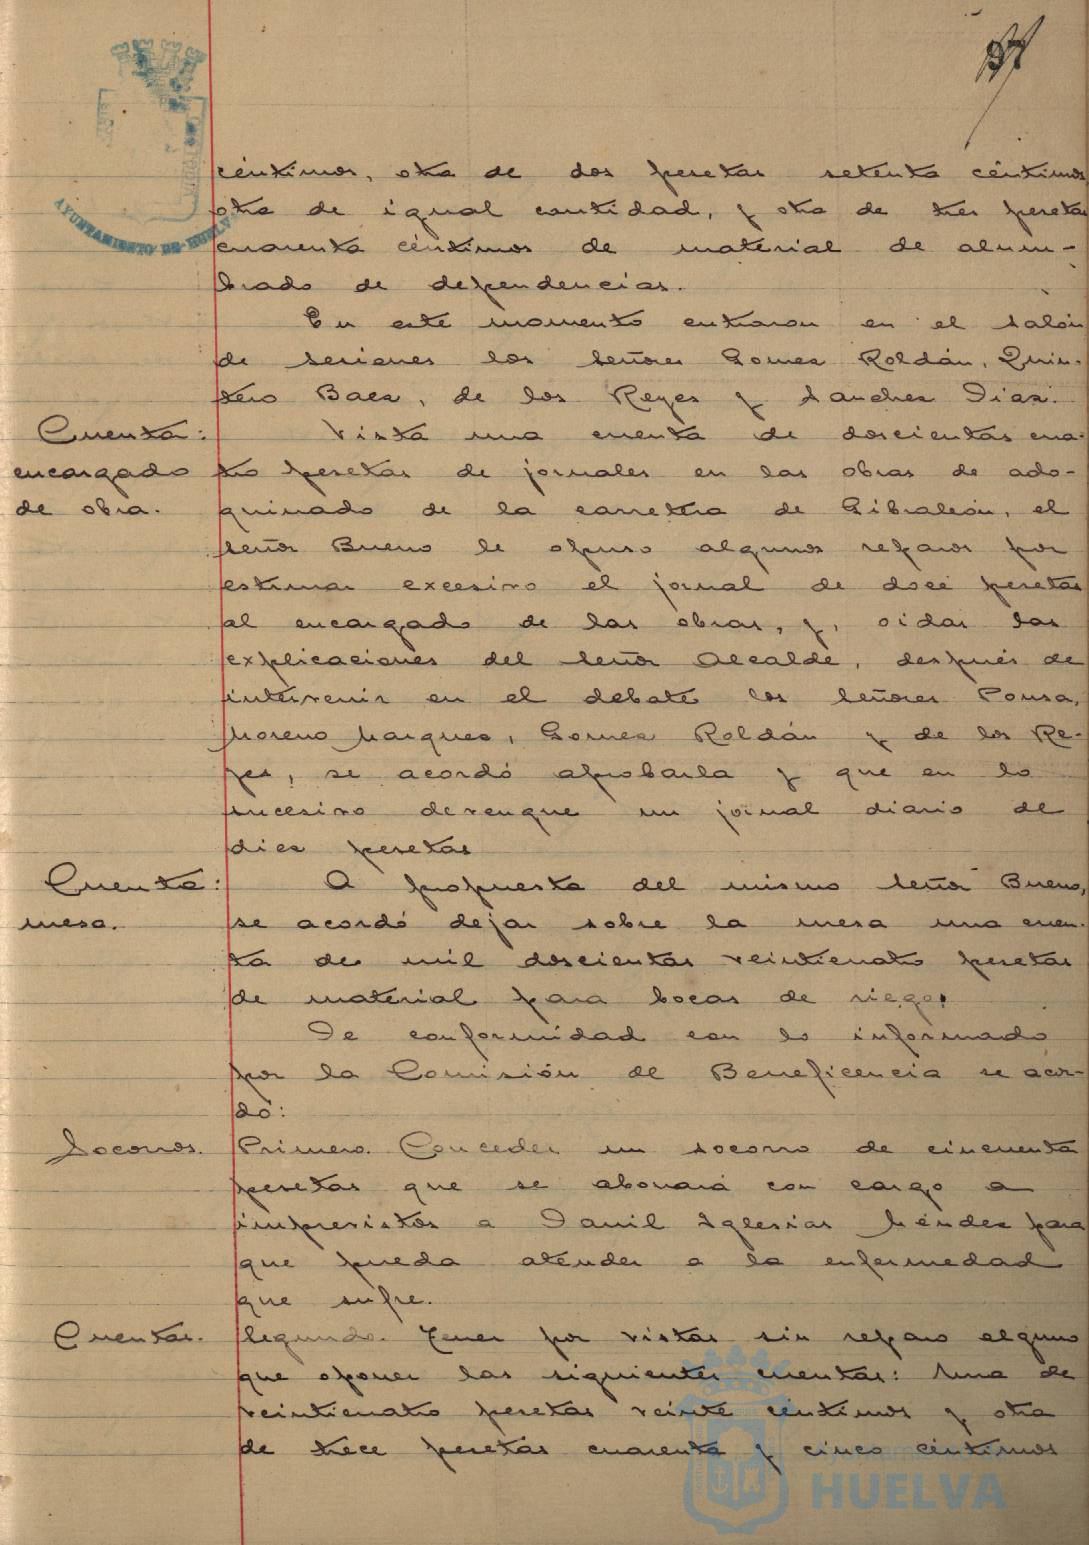 37
AYUNTAMIENTO DE HUELVA
céntimos, otra de dos pesetas setenta céntimos
otra de igual cantidad, y otra de tres pesetas
cuarenta céntimos de material de alum-
brado de dependencias.
En este momento entraron en el salón
de sesiones los señores Gomez Roldán, Quin-
tero Baez, de los Reyes y Sanchez Diaz.
Cuenta:
encargado
de obra.
Vista una cuenta de doscientas cua-
tro pesetas de jornales en las obras de ado-
quinado de la carretra de Gibraleón, el
señor Bueno le opuso algunos reparos por
estimar excesivo el jornal de doce pesetas
al encargado de las obras, y, oidas las
explicaciones del señor Alcalde, después de
intervenir en el debate los señores Ponsa,
Moreno Marquez, Gomez Roldán y de los Re-
yes, se acordó aprobarla y que en lo
sucesivo devengue un jornal diario de
diez pesetas
Cuenta:
mesa.
A propuesta del mismo señor Bueno,
se acordó dejar sobre la mesa una cuen-
ta de mil doscientas veinticuatro pesetas
de material para bocas de riego.
De conformidad con lo informado
por la Comisión de Beneficencia se acor-
dó:
Socorros.
Primero. Conceder un socorro de cincuenta
pesetas que se abonará con cargo a
imprevistos a Danil Iglesias Méndez para
que pueda atender a la enfermedad
que sufre.
Cuentas.
Segundo. Tener por vistas sin reparo alguno
que oponer las siguientes cuentas: Una de
veinticuatro pesetas veinte céntimos y otra
de trece pesetas cuarenta y cinco céntimos
Ayuntamiento de
HUELVA